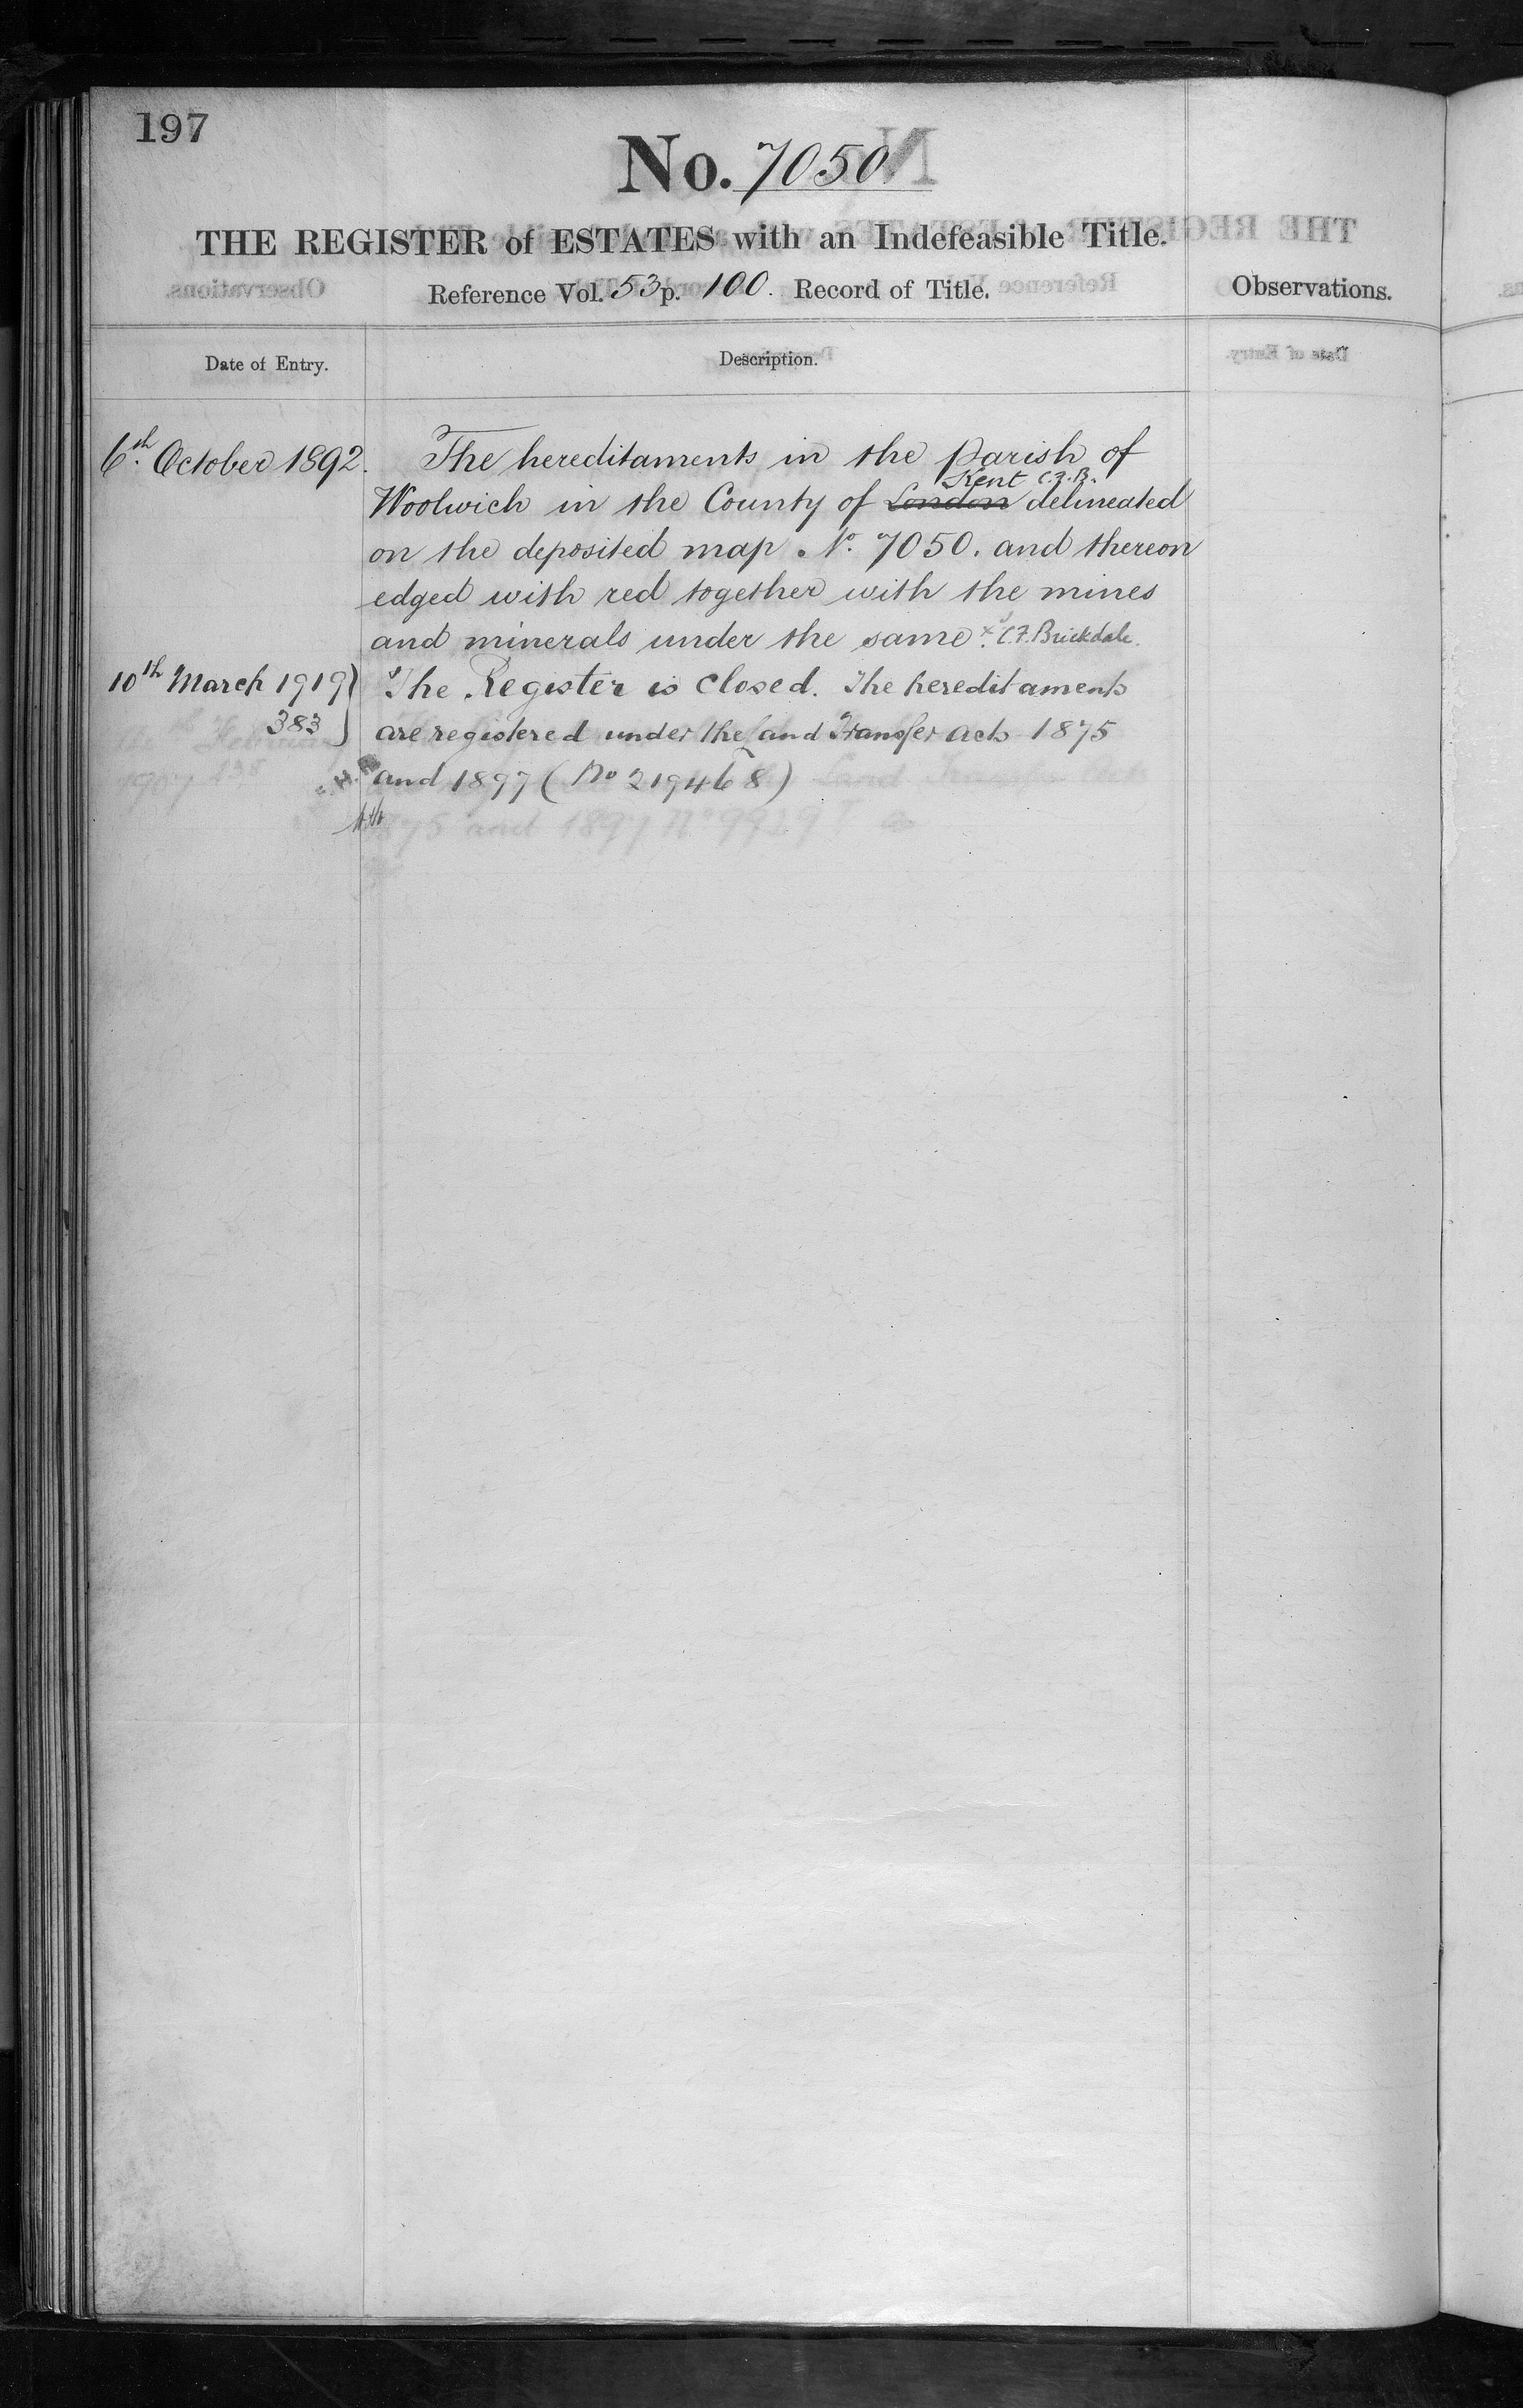 197
No. 7050
THE REGISTER of ESTATES with an Indefeasible Title.
Reference Vol. 53 p. 100. Record of Title.
Observations.
Date of Entry.
Description.
6th. October 1892.
The hereditaments in the parish of
Kent C.F.B.
Woolwich in the County of London delineated
on the deposited map No. 7050. and thereon
edged with red together with the mines
and minerals under the same. C.F. Brickdale.
10th March 1919
383
The Register is closed. The hereditaments
are registered under the Land Transfer Acts 1875
and 1897 (No 219468)